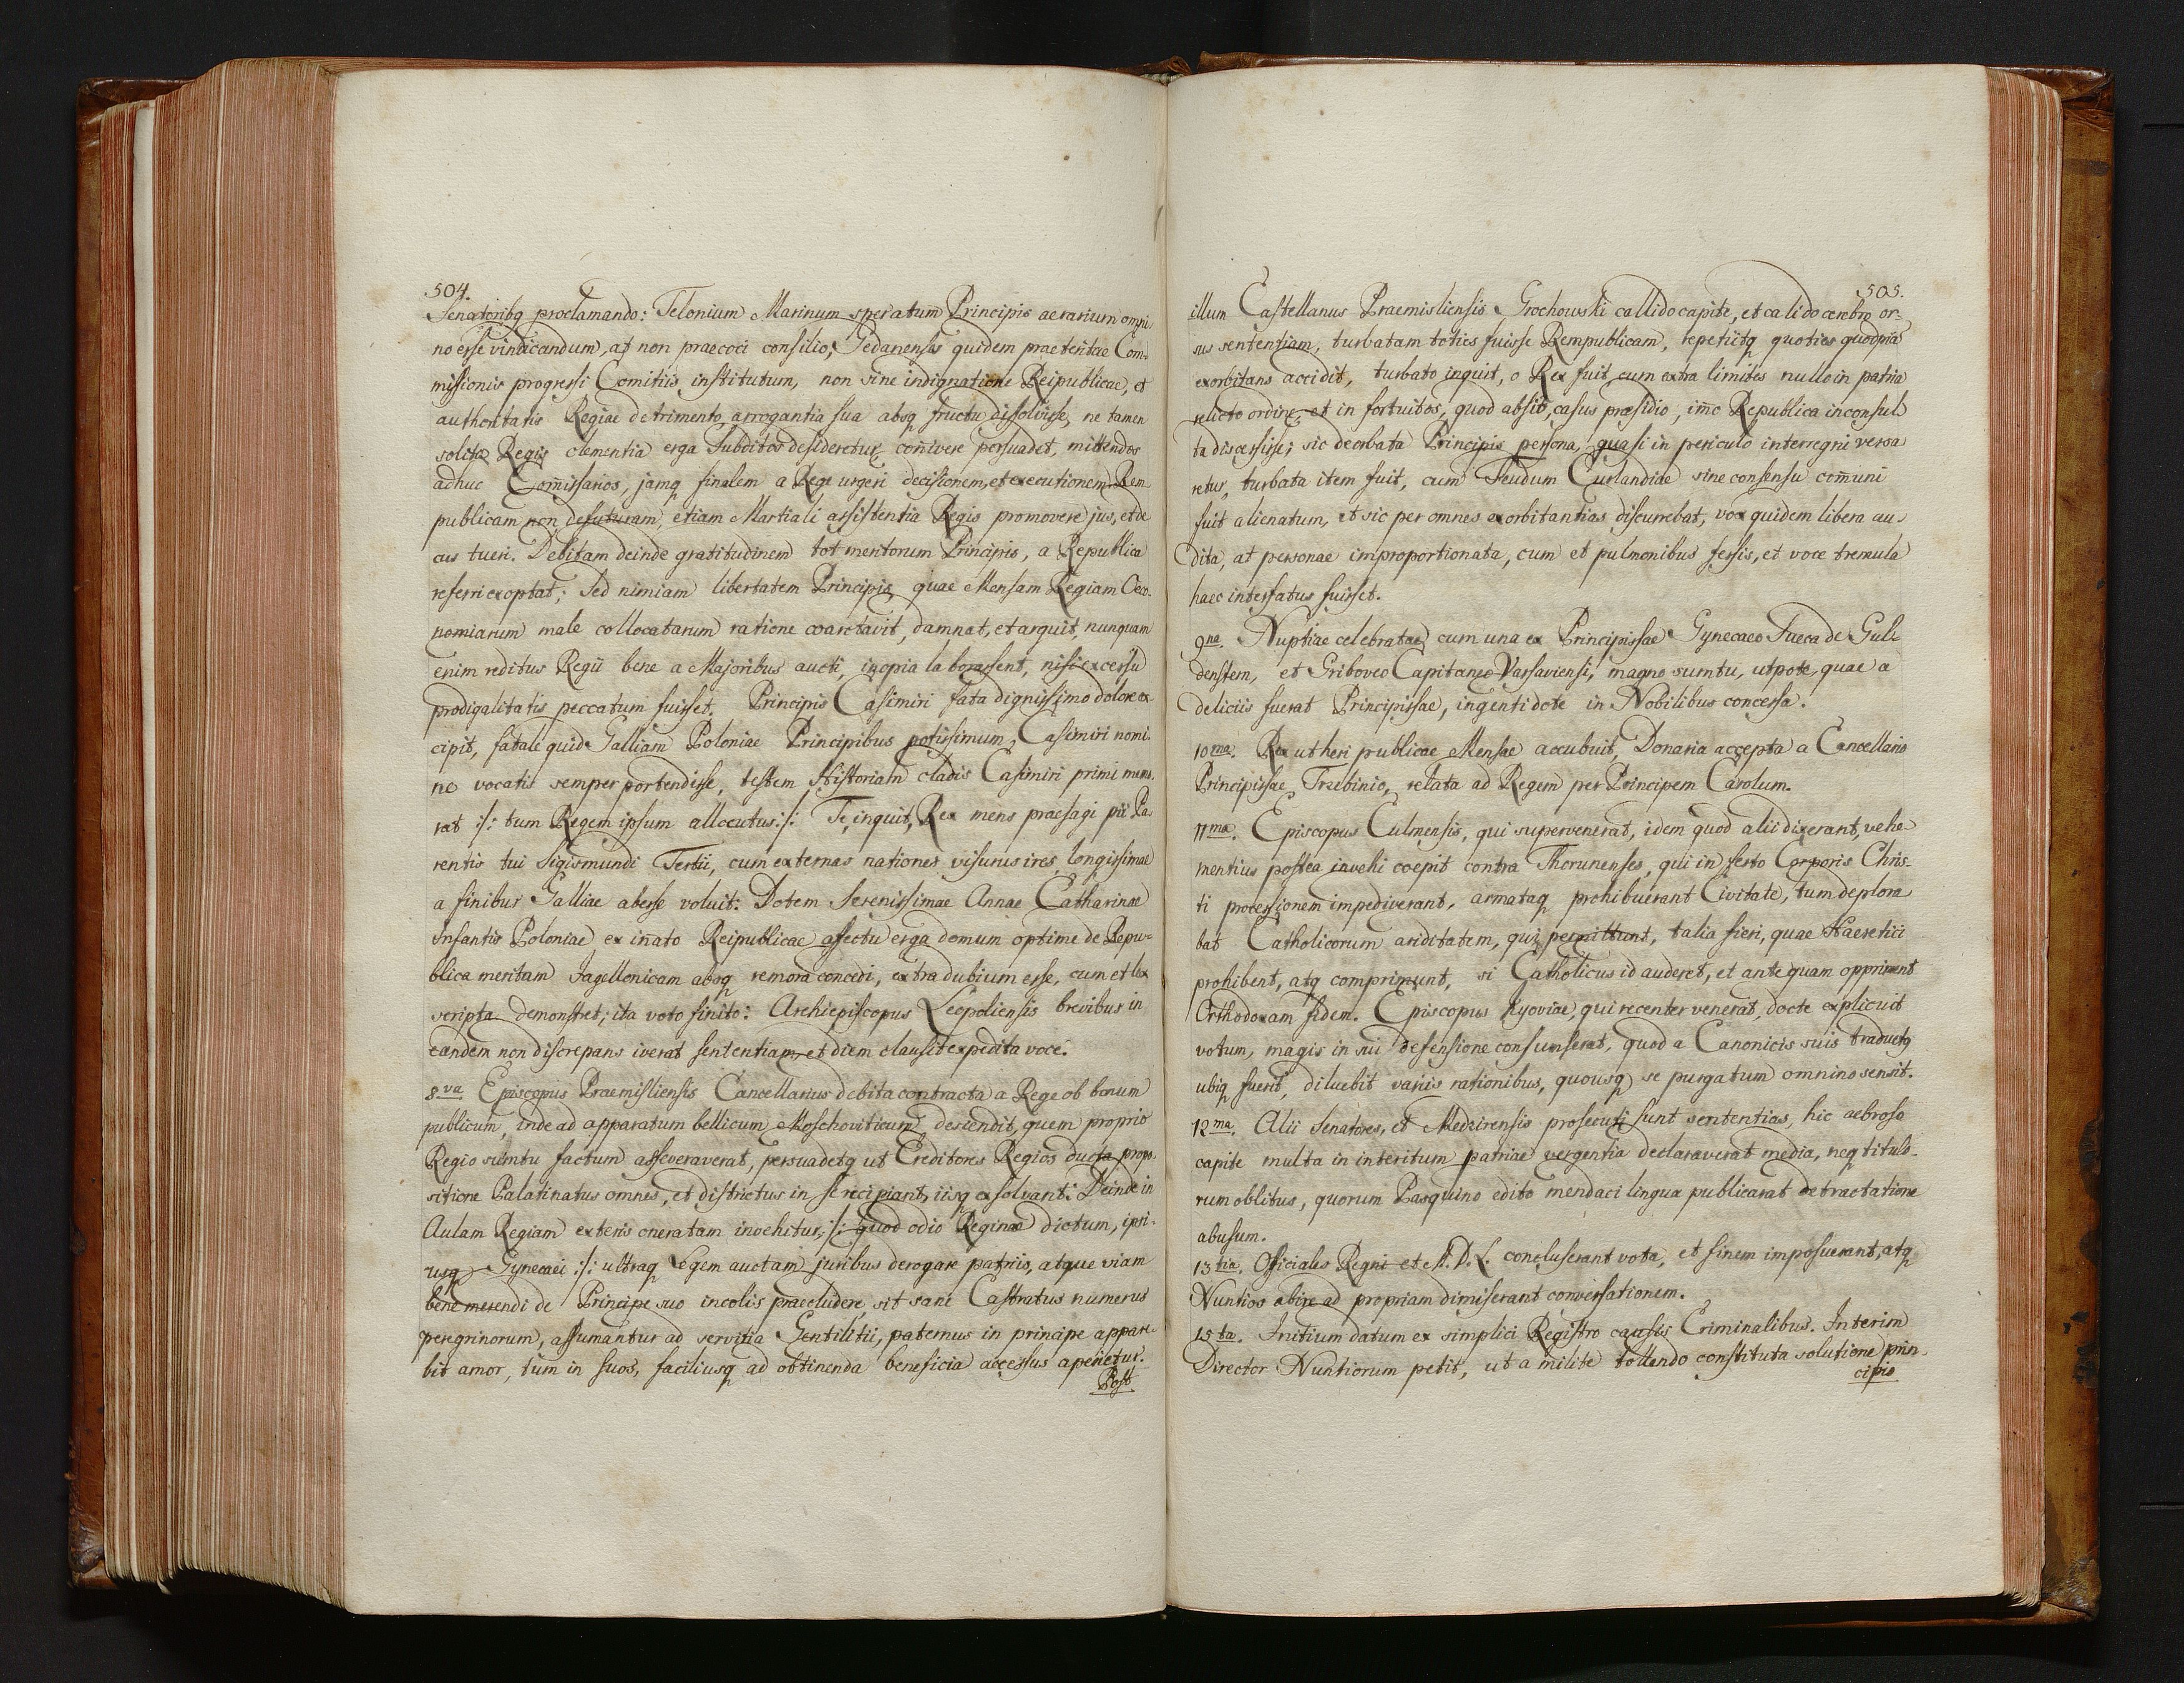 504.
Senatoribq proclamando: Telonium Marinum speratum Principis aerarium omni
no esse vindicandum, at non praecoci consilio, Gedanensis quidem praetentae Com-
missionis progressi Comitiis institutum, non sine indignatione Reipublicae, et
authoritatis Regiae detrimento, arrogantia sua absq fructu dissolvisse, ne tamen
solita Regis clementia erga Subditos desideretur, coñivere persuadet, mittendos
adhuc Com̃issarios, jamq finalem a Rege urgeri decisionem, et executionem Rem-
publicam non defuturam, etiam Martiali assistentia Regis promovere jus, et de
cus tueri. Debitam deinde gratitudinem tot meritorum Principis, a Republica
referri exoptat; Sed nimiam libertatem Principis, quae Mensam Regiam Oeco-
nomiarum male collocatarum ratione coarctavit, damnat, et arguit, nunquam
enim reditus Regii bene a Majoribus aucti, inopia laborassent, nisi excessu
prodigalitatis peccatum fuisset. Principis Casimiri fata dignissimo dolore ex-
cipit, fatale quid Galliam Poloniae Principibus potissimum, Casimiri nomi-
ne vocatis semper portendisse, testem Historiam cladis Casimiri primi memo-
rat :/: tum Regem ipsum allocutus :/: Te, inquit, Rex mens praesagi pii Pa-
rentis tui Sigismundi Tertii, cum externas nationes visurus ires, longissimae
a finibus Galliae abesse voluit. Dotem Serenissimae Annae Catharinae
Infantis Poloniae ex iñato Reipublicae affectu erga domum optime de Repu-
blica meritam Jagellonicam absq remora concedi, extra dubium esse, cum et lex
scripta demonstret; ita voto finito: Archiepiscopus Leopoliensis brevibus in
eandem non discrepans iverat sententiam, et diem clausit expedita voce.
8va Episcopus Praemisliensis Cancellarius debita contracta a Rege ob bonum
publicum, inde ad apparatum bellicum Moschoviticum descendit, quem proprio
Regio sumtu factum asseveraverat, persuadetq ut Creditores Regios ducta propo-
sitione Palatinatus omnes, et districtus in se recipiant, iisq exsolvant. Deinde in
Aulam Regiam exteris oneratam invehitur, :/: quod odio Reginae dictum, ipsi-
usq Gynecaei :/: ultraq Legem auctam juribus derogare patriis, atque viam
bene merendi de Principe suo incolis praecludere, sit sane Castratus numerus
peregrinorum, assumantur ad servitia Gentilitii, paternus in principe appare-
bit amor, tum in suos, faciliusq ad obtinenda beneficia accessus aperietur.
Post
505.
illum Castellanus Praemisliensis Grochowski callido capite, et calido cerebro or-
sus sententiam, turbatam toties fuisse Rempublicam, repetiitq quoties quodpia
exorbitans accidit, turbato inquit, o Rex fuit, cum extra limites nullo in patria
relicto ordine, et in fortuitos, quod absit, casus praesidio, im̃o Republica inconsul
ta discessisse; sic deorbata Principis persona, quasi in periculo interregni versa
retur, turbata item fuit, cum Feudum Curlandiae sine consensu com̃uni
fuit alienatum, et sic per omnes exorbitantias discurrebat, vox quidem libera au-
dita, at personae improportionata, cum et pulmonibus fessis, et voce tremula
haec interfatus fuisset.
9na. Nuptiae celebratae cum una ex Principissae Gynecaeo Fueca de Gul-
denstern, et Gribovео Capitaneo Varsaviensi, magno sumtu, utpote, quae a
deliciis fuerat Principissae, ingenti dote in Nobilibus concessa.
10ma. Rex ut heri publicae Mensae accubuit, Donaria accepta a Cancellario
Principissae Trzebinio, relata ad Regem per Principem Carolum.
11ma. Episcopus Culmensis, qui supervenerat, idem quod alii dixerant, vehe-
mentius postea invehi coepit contra Thorunenses, qui in festo Corporis Chris-
ti processionem impediverant, armataq prohibuerant Civitate, tum deplora
bat Catholicorum ariditatem, qui permittunt, talia fieri, quae Haeretici
prohibent, atq comprimunt, si Catholicus id auderet, et antequam opprimant
Orthodoxam fidem. Episcopus Kyoviae, qui recenter venerat, docte explicuit
votum, magis in sui defensione consumserat, quod a Canonicis suis traductq
ubiq fuerit, diluebit variis rationibus, quousq se purgatum omnino sensit.
12ma. Alii Senatores, et Medzirensis prosecuti sunt sententias, hic aebroso
capite multa in interitum patriae vergentia declaraverat media, neq titulo-
rum oblitus, quorum Pasquino edito mendaci lingua publicarat detractatione
abusum.
13tia. Officiales Regni et M. D. L. concluserant vota, et finem imposuerant, atq
Nuntios abire ad propriam dimiserant conversationem.
15ta. Initium datum ex simplici Registro causis Criminalibus. Interim
Director Nuntiorum petit, ut a milite tollendo constituta solutione prin-
cipio